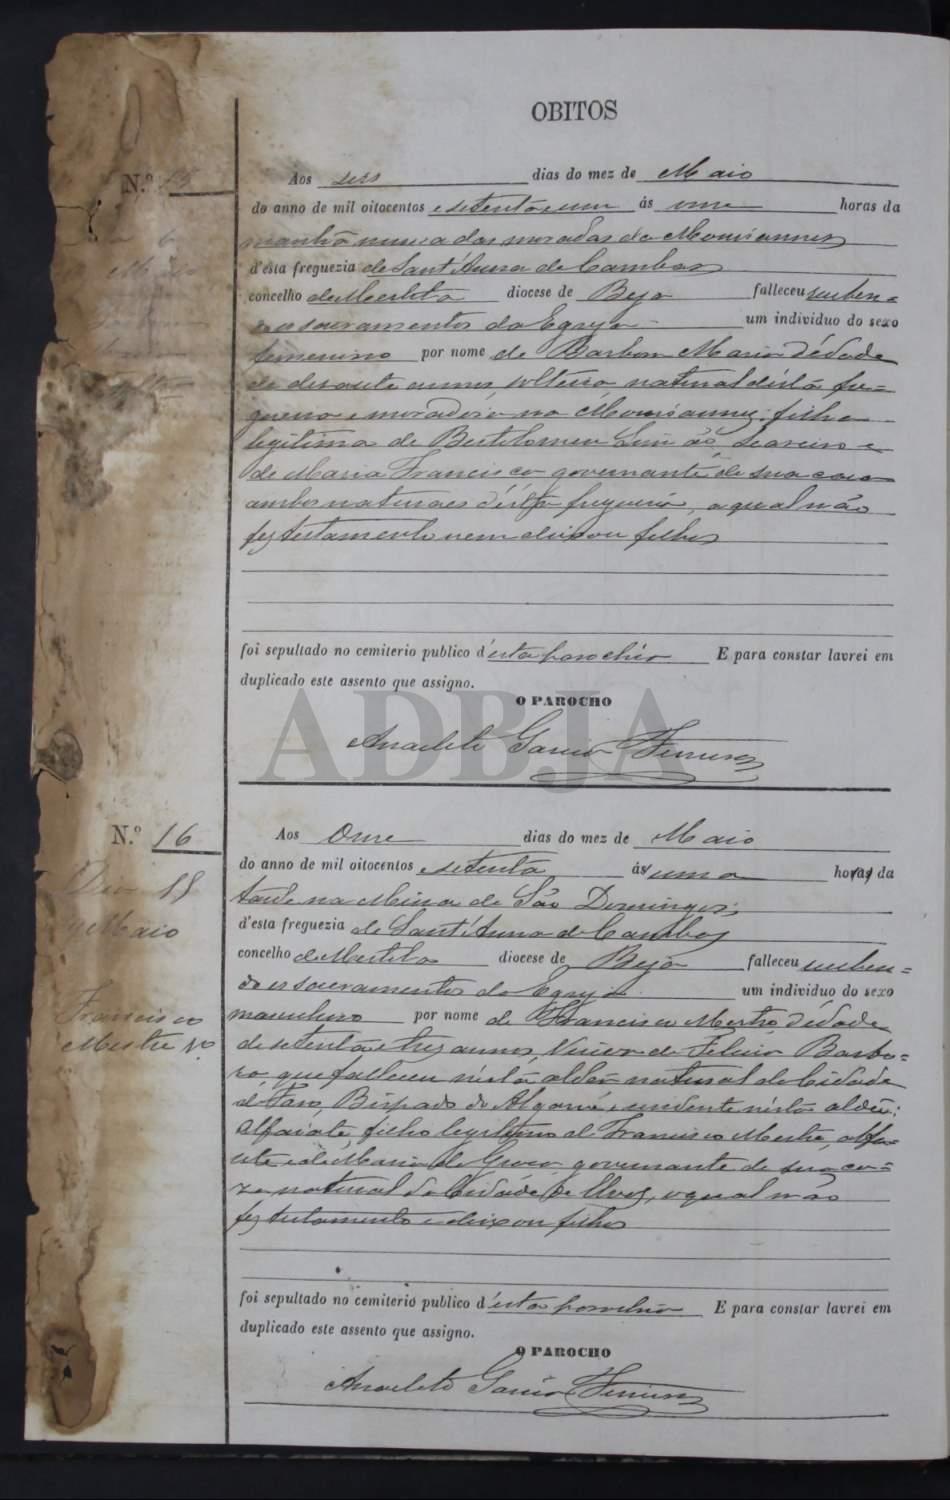 OBITOS
N.º 15
Aos seis dias do mez de Maio
do anno de mil oitocentos e setenta e um ás onze horas da
manhã numa das moradas de
d'esta freguezia de Sant'Anna de Cambas
concelho de Mertola diocese de Beja falleceu receben=
do os sacramentos da Egreja um individuo do sexo
femenino por nome de Barbora Maria d'edade
de desasete annos, solteira natural désta fre=
guezia e moradora no filha
legitima de Bertolomeu seareiro e
de Maria Francisca governante de sua casa
ambos naturaes d'ésta freguezia, a qual não
fez testamento nem deixou filhos
foi sepultado no cemiterio publico d'esta parochia E para constar lavrei em
duplicado este assento que assigno.
O PAROCHO
Anacleto Garcia Ferreira
ADBJA
N.º 16
Dia 11
Maio
Francisco
Mestre Vº
Aos Onze dias do mez de Maio
do anno de mil oitocentos e setenta ás uma horas da
tarde na Mina de São Domingos
d'esta freguezia de Sant'Anna de Cambas
concelho de Mertola diocese de Beja falleceu receben=
do os sacramentos da Egreja um individuo do sexo
masculino por nome de Francisco Mestre d'édade
de setenta e tres annos, Viuvo de Barbo=
ra que falleceu nésta aldêa natural da Cidade
de Faro, Bispado do Algarve, residente nésta aldêa;
Alfaiate, filho legitimo de Francisco Mestre, alfai=
ate e de Maria da governante de sua ca=
za natural da Cidade de Elvas, o qual não
fez testamento e deixou filhos
foi sepultado no cemiterio publico d'esta parochia E para constar lavrei em
duplicado este assento que assigno.
O PAROCHO
Anacleto Garcia Ferreira